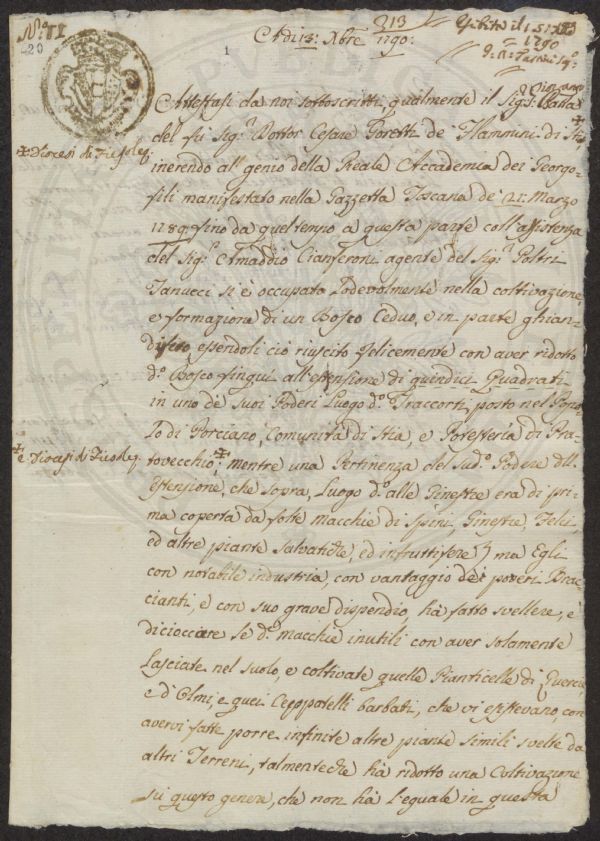 N.º II
20
1
213
Adì 13: Xbre 1790:
Esibito il 15: Xbre
1790
Attestasi da noi sottoscritti qualmente il Sig.re
del fù Sig.r Dottor Cesare Goretti de Flammini di Stia
✠ Diocesi di Fiesole
inerendo al genio della Reale Accademia dei Georgo-
fili manifestato nella Gazzetta Toscana de 21: Marzo
1789. fino da quel tempo a questa parte coll'assistenza
del Sig.r Amaddio Cianferoni agente del Sig.r Poltri
Tanucci si è occupato lodevolmente nella coltivazione,
e formazione di un Bosco Ceduo, e in parte ghian-
difero essendoli ciò riuscito felicemente con aver ridotto
d.º Bosco finquì all'estensione di quindici Quadrati
in uno de suoi Poderi Luogo d.º Traccorti, posto nel Popo-
lo di Porciano, Comunità di Stia, e Potesteria di Pra-
tovecchio; ✠ mentre una Pertinenza del Sud.º Podere dell'
✠ e Diocesi di Fiesole
Estensione, che sopra, Luogo d.º alle Ginestre era di pri-
ma coperta da folte macchie di Spini, Ginestre, Felci,
ed altre piante Salvatiche, ed infruttifere; ma Egli
con notabile industria, con vantaggio dei poveri Brac-
cianti, e con suo grave dispendio, hà fatto svellere, e
diciocciare le d.e macchie inutili con aver solamente
Lasciate nel suolo, e coltivate quelle Pianticelle di Quercie,
e d'Olmi, e quei Ceppatelli barbati, che vi esistevano, con
avervi fatte porre infinite altre piante simili svelte da
altri Terreni, talmenteche hà ridotto una Coltivazione
su questo genere, che non hà l'eguale in questa